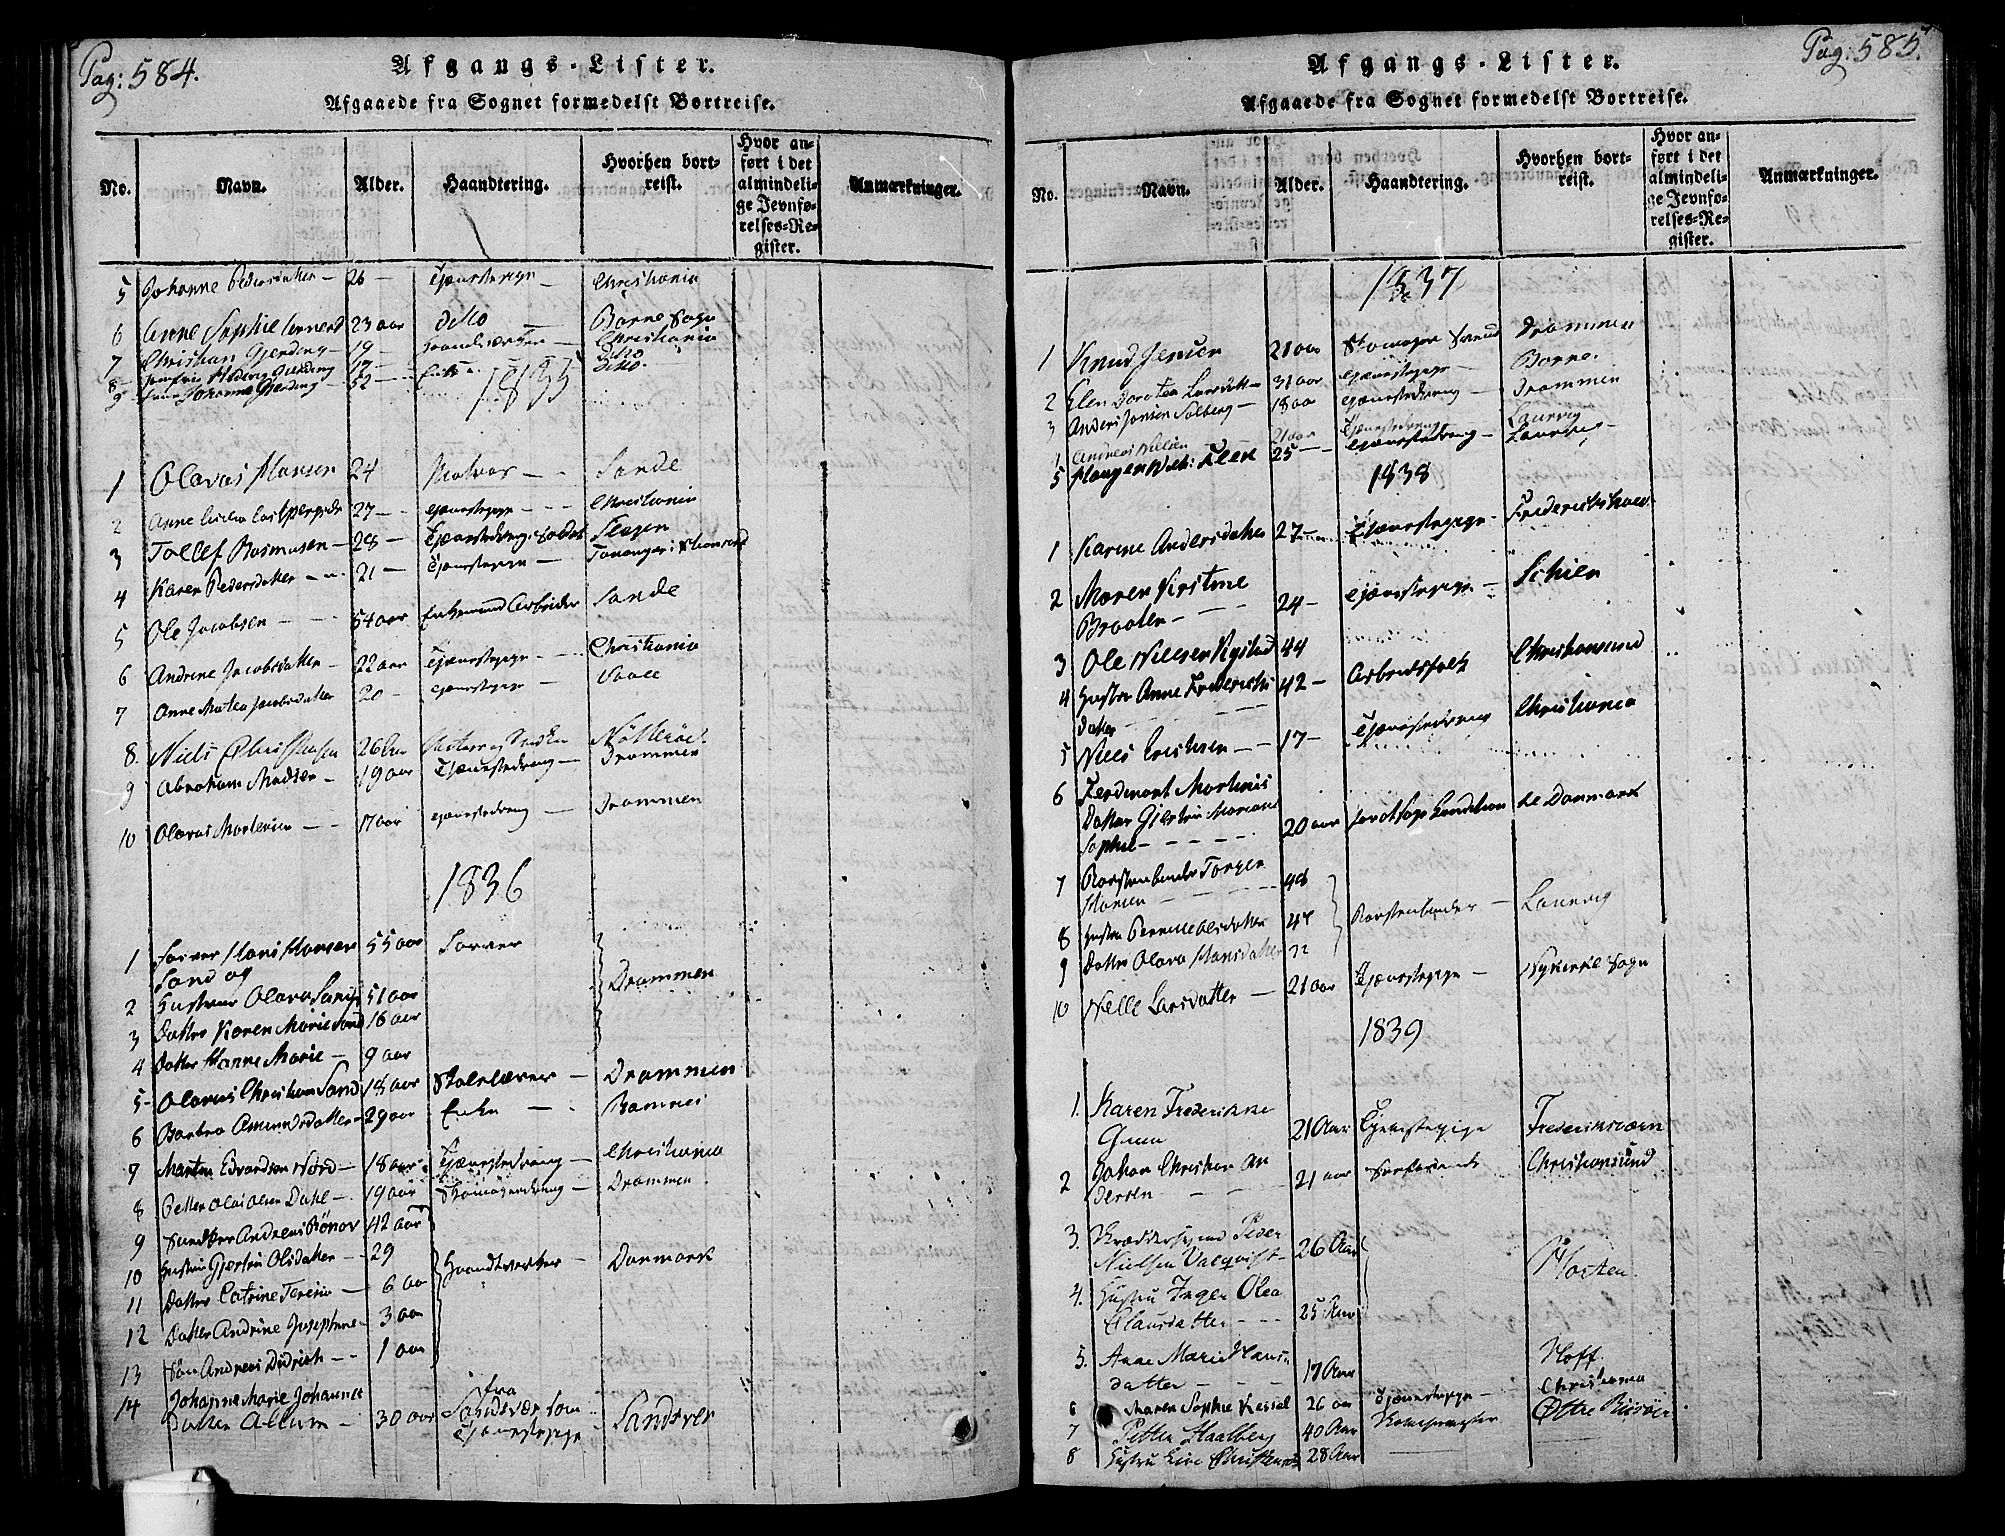 Pag: 584.
Afgangs-Lister.
Afgaaede fra Sognet formedelst Bortreise.
No. Navn. Alder. Haandtering. Hvorhen bortreist. Hvor anført i det almindelige Jevnførelses-Register. Anmærkninger.
5 Johanne Pedersdatter — 26 — Tjenestepige — Christiania
6 Anne Sophie 23 aar ditto — Borre Sogn
7 Christian Gjerding — 19 — Christiania
8 Hedvig Gjerding 17 — Ditto
9 Johanne Gjerding 52 — Enke — Ditto.
1835
1 Olavus Hansen 24 Matros — Sande
2 Anne 27 — Tjenestepige — Christiania
3 Tollef Rasmusen — 28 — Tjenestedreng Slagen
4 Karen Pedersdatter — 21 — Tjenestepige —
5 Ole Jacobsen — 54 aar Enkemand Arbeider Sande
6 Andrine Jacobsdatter — 22 aar Tjenestepige — Christiania
7 Anne Mathea Jacobsdatter 20 — Tjenestepige —
8. Niels Christiansen 26 Aar Nøtterøe.
9 Abraham Madsen — 19 aar Tjenestedreng — Drammen
10 Olavus Mortensen — 17 aar Tjenestedreng — Drammen
1836
1 Farver Hans Hansen 55 aar Farver
Sand og
2 Hustrue Olava Sand 51 aar Drammen
3 Datter Karen Marie Sand 16 aar
4 Datter Hanne Marie — 9 aar
5 Olavus Christian Sand 18 aar — Drammen
6 Barbra Amundsdatter — 29 aar Enke — Ramnes
7 Martin Edvardsen Nord — 18 aar Tjenestedreng — Christiania
8 Petter Olai Olsen Dahl — 19 aar — Drammen.
9 Andreas Rønov 42 aar
10 Hustru Gjertru Olsdatter — 29 Haandtverker — Danmark
11 Datter Catrine Teresia — 6 aar
12 Datter Andrine Josephine — 3 aar
13 Søn Andreas Didrich — 1 aar
14 Johanne Marie Johannes fra
Datter Allum — 30 aar Sandsvær som Sandsver
Tjenestepige
Pag: 585.
Afgangs-Lister.
Afgaaede fra Sognet formedelst Bortreise.
No. Navn. Alder. Haandtering. Hvorhen bortreist. Hvor anført i det almindelige Jevnførelses-Register. Anmærkninger.
1837
1 Knud Jensen 21 aar Skomager Svend Drammen
2 Elen Dorotea Larsdatter 31 aar Tjenestepige — Borre.
3 Anders Jonsen Solberg — 18 aar Tjenestedreng — Drammen
Andreas Nielsen 21 aar Tjenestedreng Laurvig
5 25 — Tjenestedreng — Laurvig
1838
1 Karine Andersdatter 27 — Tjenestepige — Frederikshald
2 Maren Kirstine
Braaten — 24 — Tjenestepige — Schien
3 Ole Nielsen Rystad 44
4 Hustru Anne Frederichs 42 — Arbeidsfolk Christiansund
datter —
5 Niels Erichsen — 17 — Tjenestedreng Christiania
6 Ferdinant Martinis
Datter Gjertru Mariane
Sophie — 20 aar til Danmark
7 Børstenbinder Torger
Hansen — 48
8 Hustru Pernille Olsdatter 47 Børstenbinder — Laurvig
9 Datter Olava Hansdatter 12
10 Nille Larsdatter — 21 aar Tjenestepige — Nykirke Sogn
1839
1. Karen Frederikke
21 Aar Tjenestepige Frederiksværn
2 Johan Christian An
dersen — 21 aar Christiansund
3. Skræddersvend Peder
Nielsen Valqvist — 26 Aar Horten.
4. Hustru Inger Olea
Clausdatter — 25 Aar
5. Anne Marie Hans
datter — 17 Aar Hoff
6 Maren Sophie Kessel 26 aar Tjenestepige — Christiania
7 Petter Haalberg 40 Aar Østre Riisøer
8 Hustru Live 28 Aar